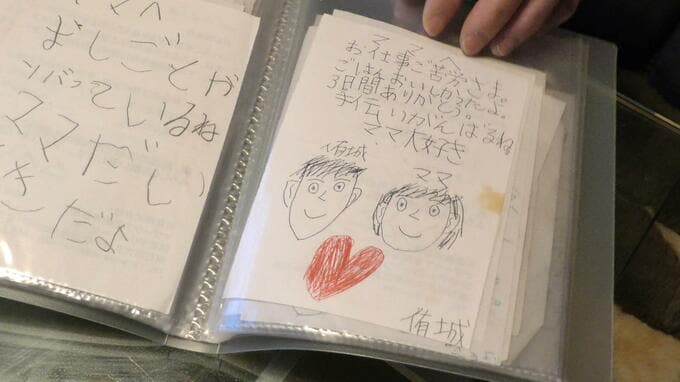 ママへ
おしごとが
ンバっているね
ママだい
きだよ
ママへ
お仕事ご苦労さま。
ごはんおいしかったよ。
3日間ありがとう。
手伝いがんばるね。
ママ大好き
侑城
ママ
侑城